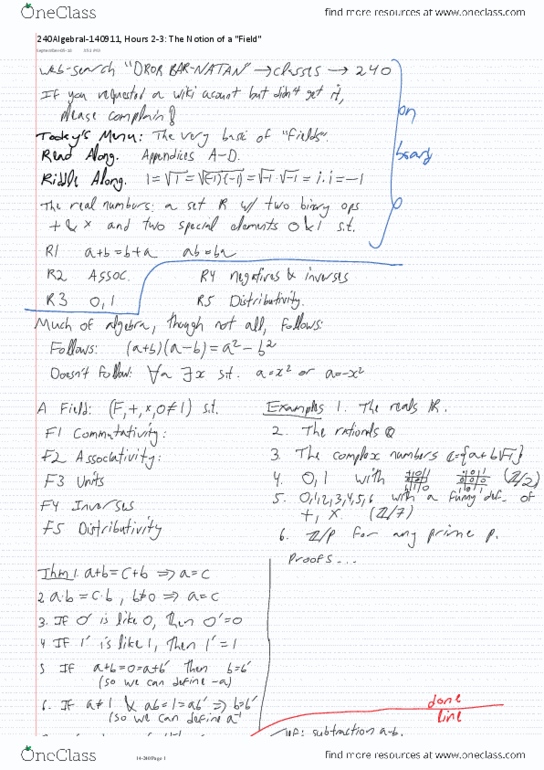 OneClass
find more resources at www.oneclass.com
240AlgebraI-140911, Hours 2-3: The Notion of a "Field"
web-search "DROR BAR-NATAN" → classes → 240
If you requested a wiki acount but didn't get it,
please complain!
on
board
Today's Menu: The very basic of "Fields".
Read Along. Appendices A-D.
Riddle Along. 1=√1=√(-1)(-1)=√-1·√-1=i·i=-1
The real numbers: a set R w/ two binary ops
+ & × and two special elements 0 & 1 s.t.
R1 a+b=b+a ab=ba
R2 Assoc. R4 negatives & inverses
R3 0,1 R5 Distributivity.
Much of algebra, though not all, follows:
Follows: (a+b)(a-b)=a²-b²
Doesn't follow: ∀a ∃x s.t. a=x² or a=-x²
A Field: (F,+,×,0≠1) s.t.
F1 Commutativity:
F2 Associativity:
F3 Units
F4 Inverses
F5 Distributivity
Examples 1. The reals ℝ.
2. The rationals ℚ
3. The complex numbers ℂ={a+b√-1}
4. 0,1 with (ℤ/2)
5. 0,1,2,3,4,5,6 with a funny def. of
+, × (ℤ/7)
6. ℤ/p for any prime p.
Proofs...
Thm 1. a+b=c+b ⇒ a=c
2 a·b=c·b, b≠0 ⇒ a=c
3. If 0' is like 0, Then 0'=0
4 If 1' is like 1, Then 1'=1
5 If a+b=0=a+b' Then b=b'
(so we can define -a)
6. If a≠1 & ab=1=ab' ⇒ b=b'
(so we can define a⁻¹
done
line
subtraction a-b.
OneClass
14-240 Page 1
find more resources at www.oneclass.com